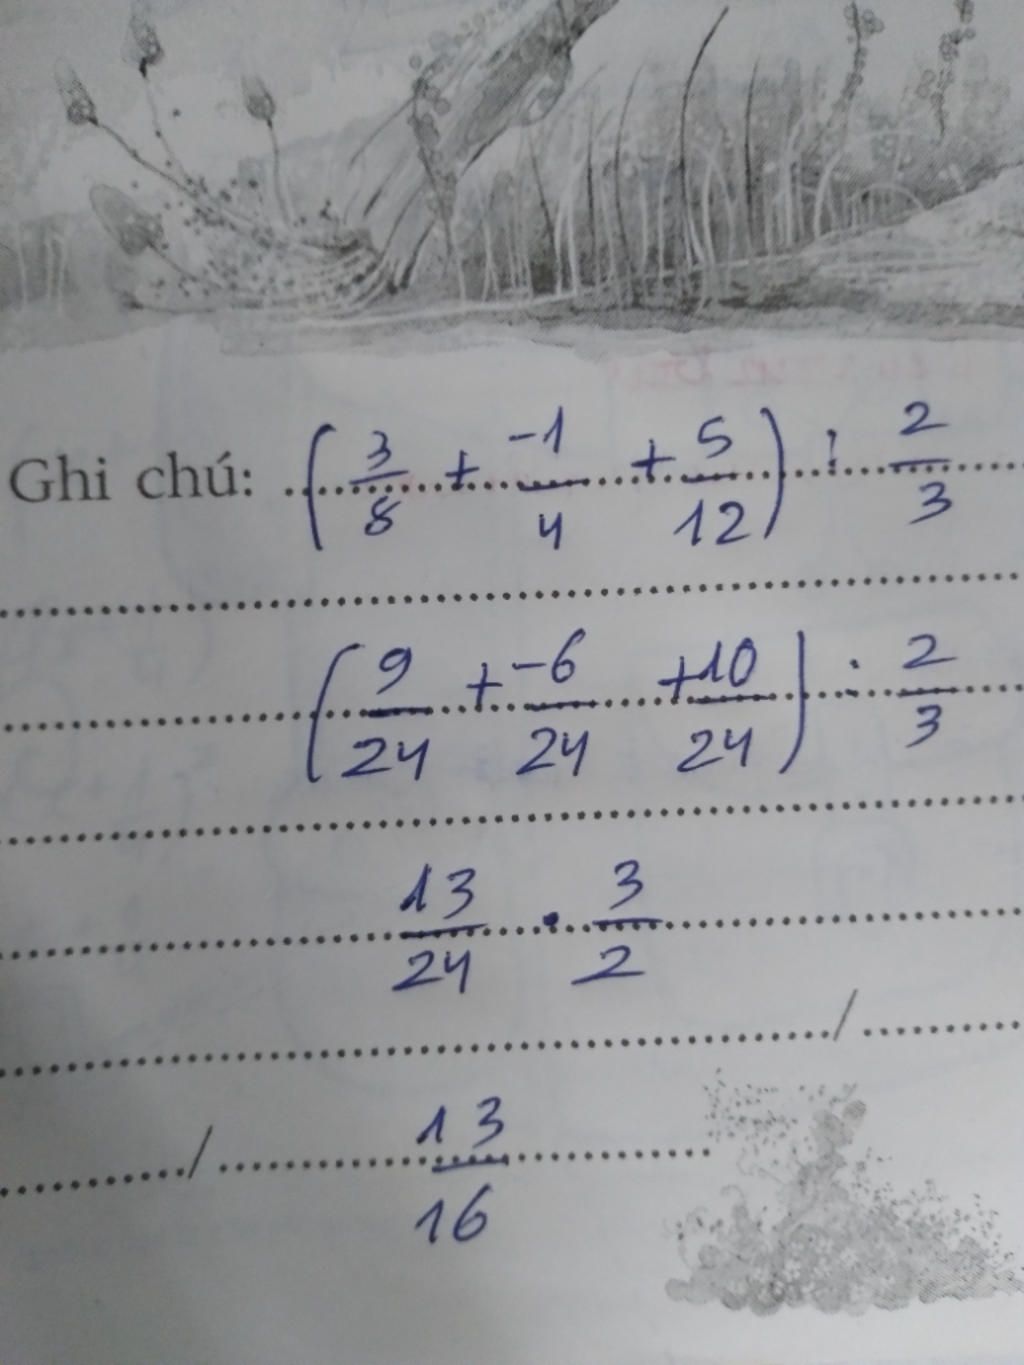 Ghi chú: (3/8 + -1/4 + 5/12) : 2/3
(9/24 + -6/24 + 10/24) : 2/3
13/24 . 3/2
13/16